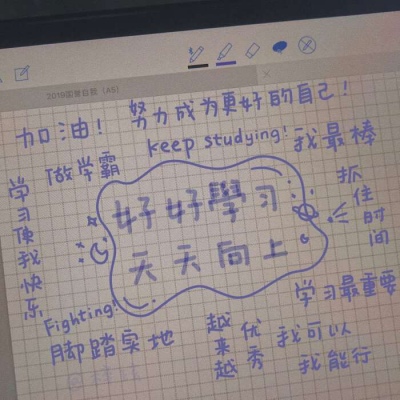 加油!
努力成为更好的自己!
keep studying!
我最棒
做学霸
学习使我快乐
抓住时间
好好學习
天天向上
学习最重要
Fighting!
脚踏实地
越来越优秀
我可以
我能行